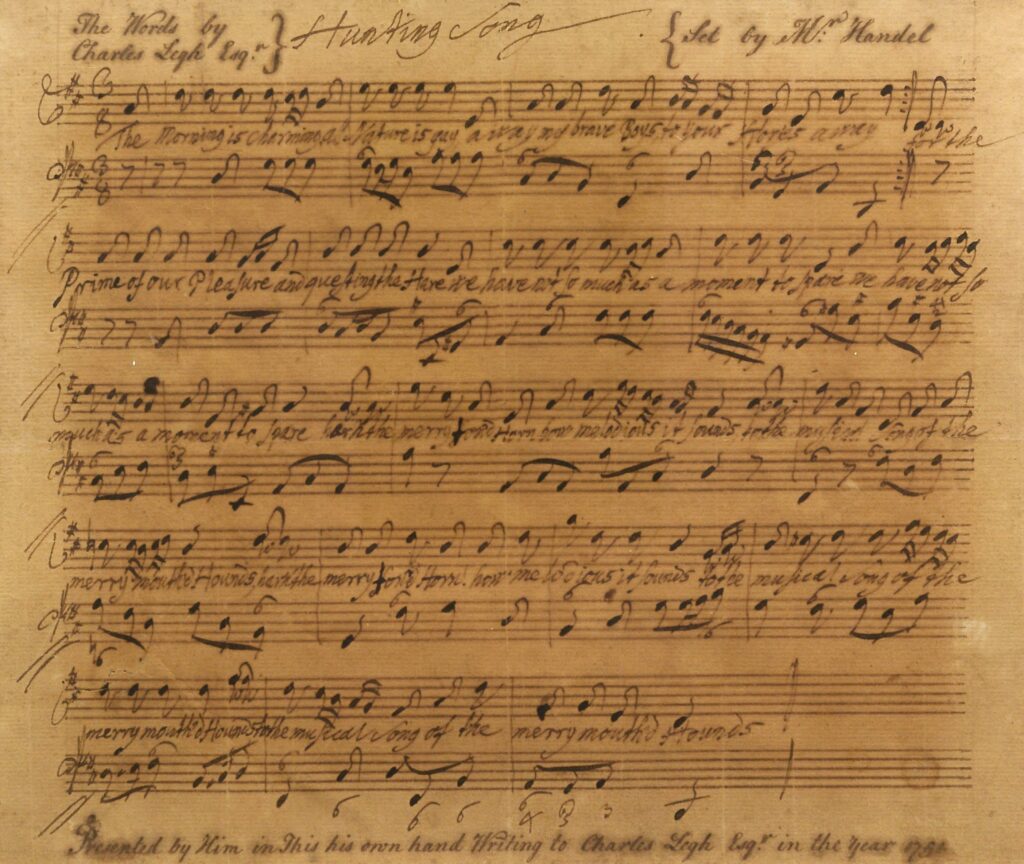 The Words by
Charles Legh Esqr.
Hunting Song
Set by Mr. Handel
The Morning is charming al Nature is gay away my brave Boys to your Horses away for the
Prime of our Pleasure and questing the Hare we have not so much as a moment to spare we have not so
much as a moment to spare hark the merry ton'd Horn how melodious it sounds to the musical Song of the
merry mouth'd Hounds hark the merry ton'd Horn how melodious it sounds to the musical song of the
merry mouth'd Hounds to the musical Song of the merry mouth'd Hounds
Presented by Him in This his own hand Writing to Charles Legh Esqr. in the Year